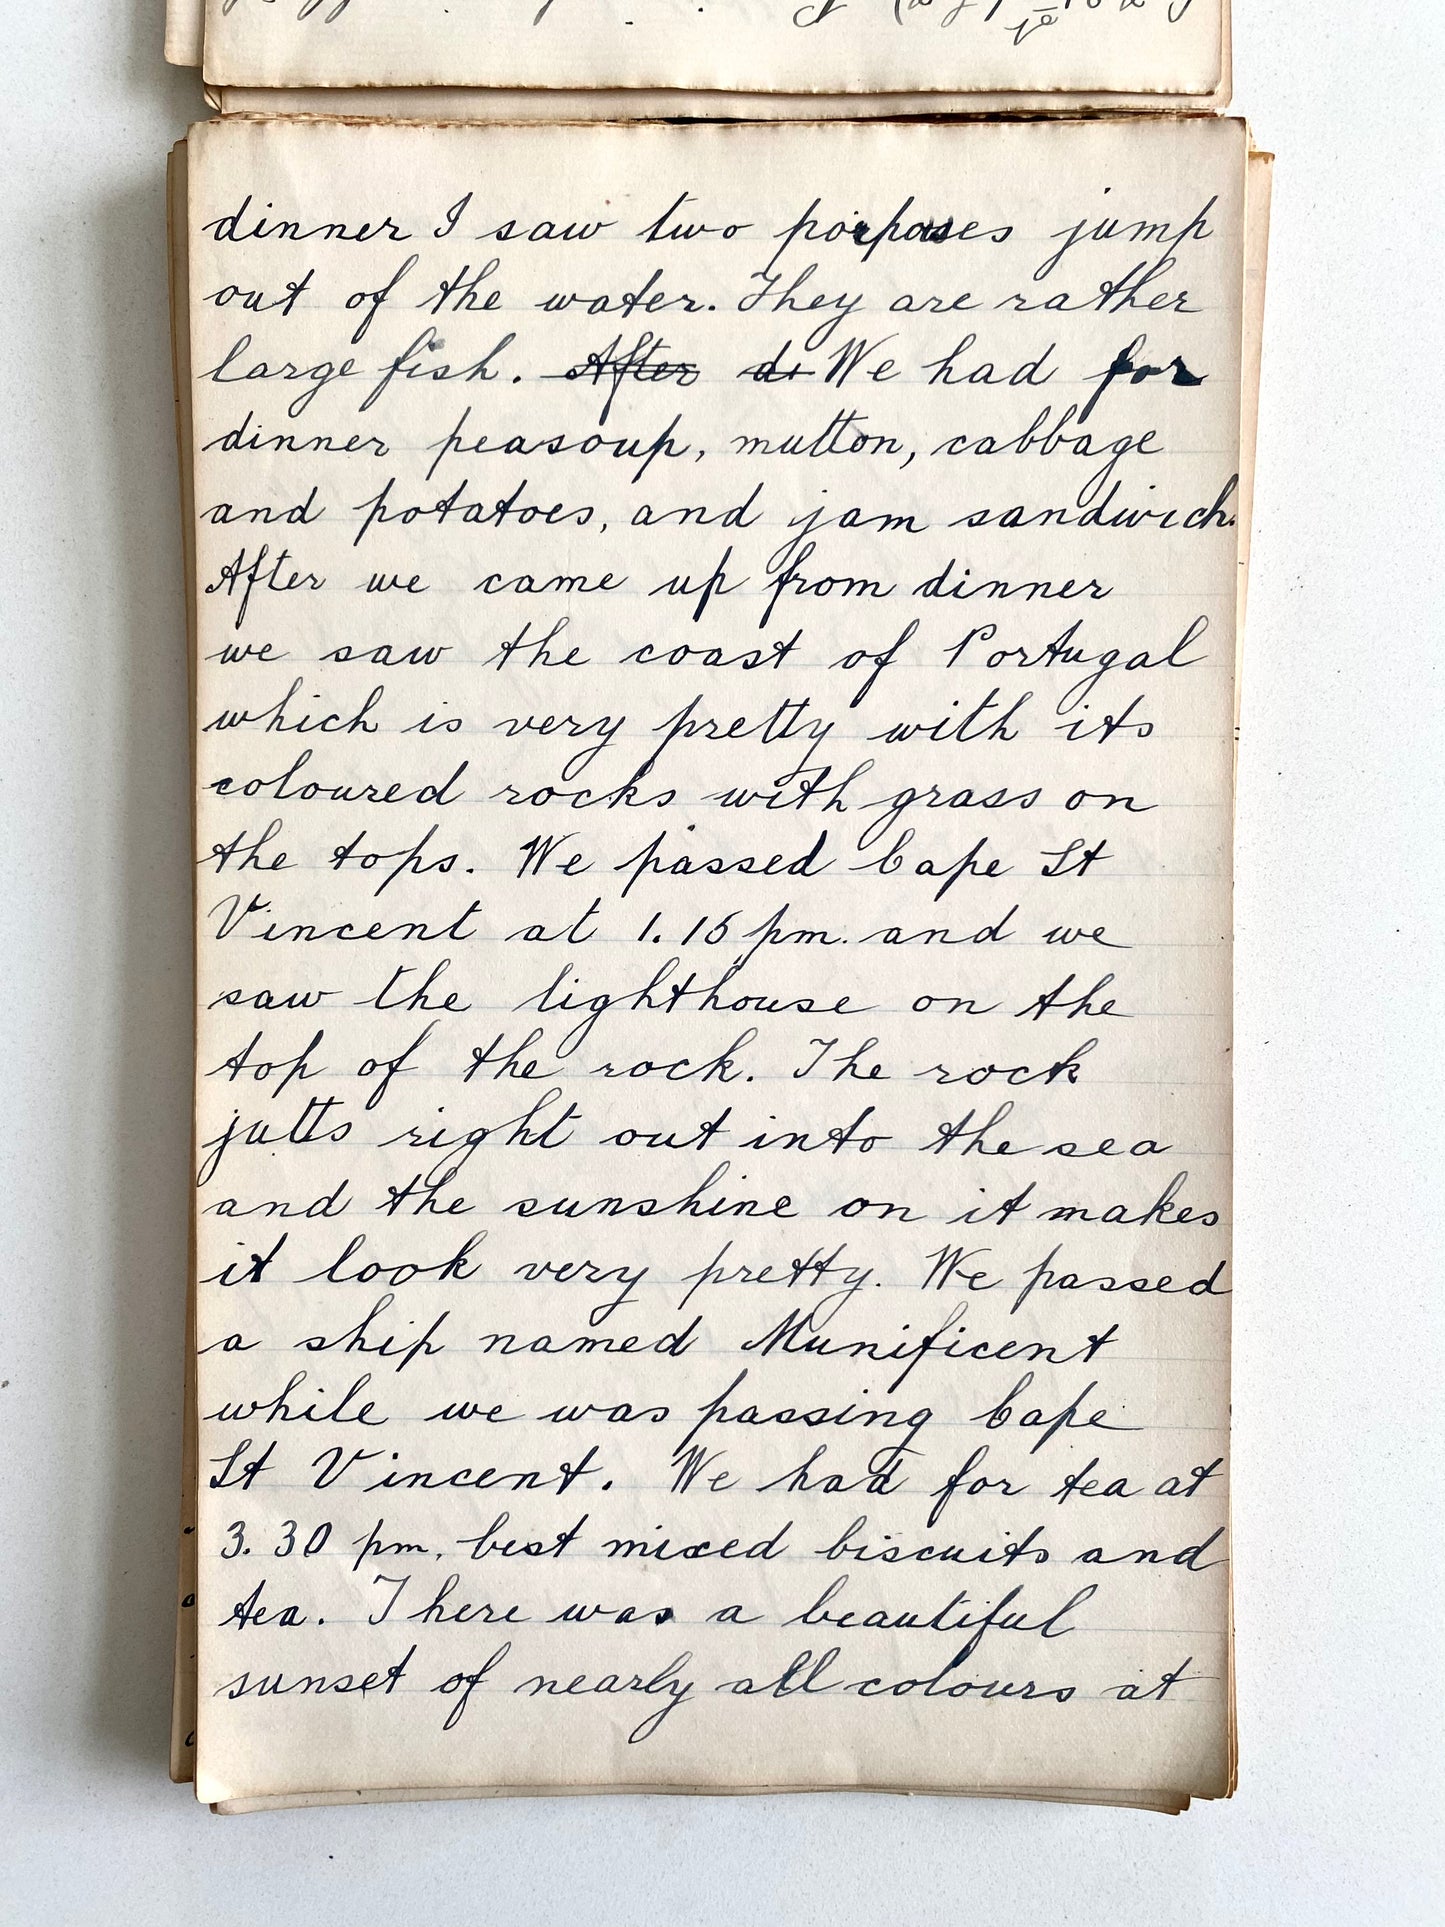 dinner I saw two porpoises jump
out of the water. They are rather
large fish. After di We had for
dinner peasoup, mutton, cabbage
and potatoes, and jam sandwich.
After we came up from dinner
we saw the coast of Portugal
which is very pretty with its
coloured rocks with grass on
the tops. We passed Cape St
Vincent at 1.15 pm. and we
saw the lighthouse on the
top of the rock. The rock
jutts right out into the sea
and the sunshine on it makes
it look very pretty. We passed
a ship named Munificent
while we was passing Cape
St Vincent. We had for tea at
3.30 pm. best mixed biscuits and
tea. There was a beautiful
sunset of nearly all colours at